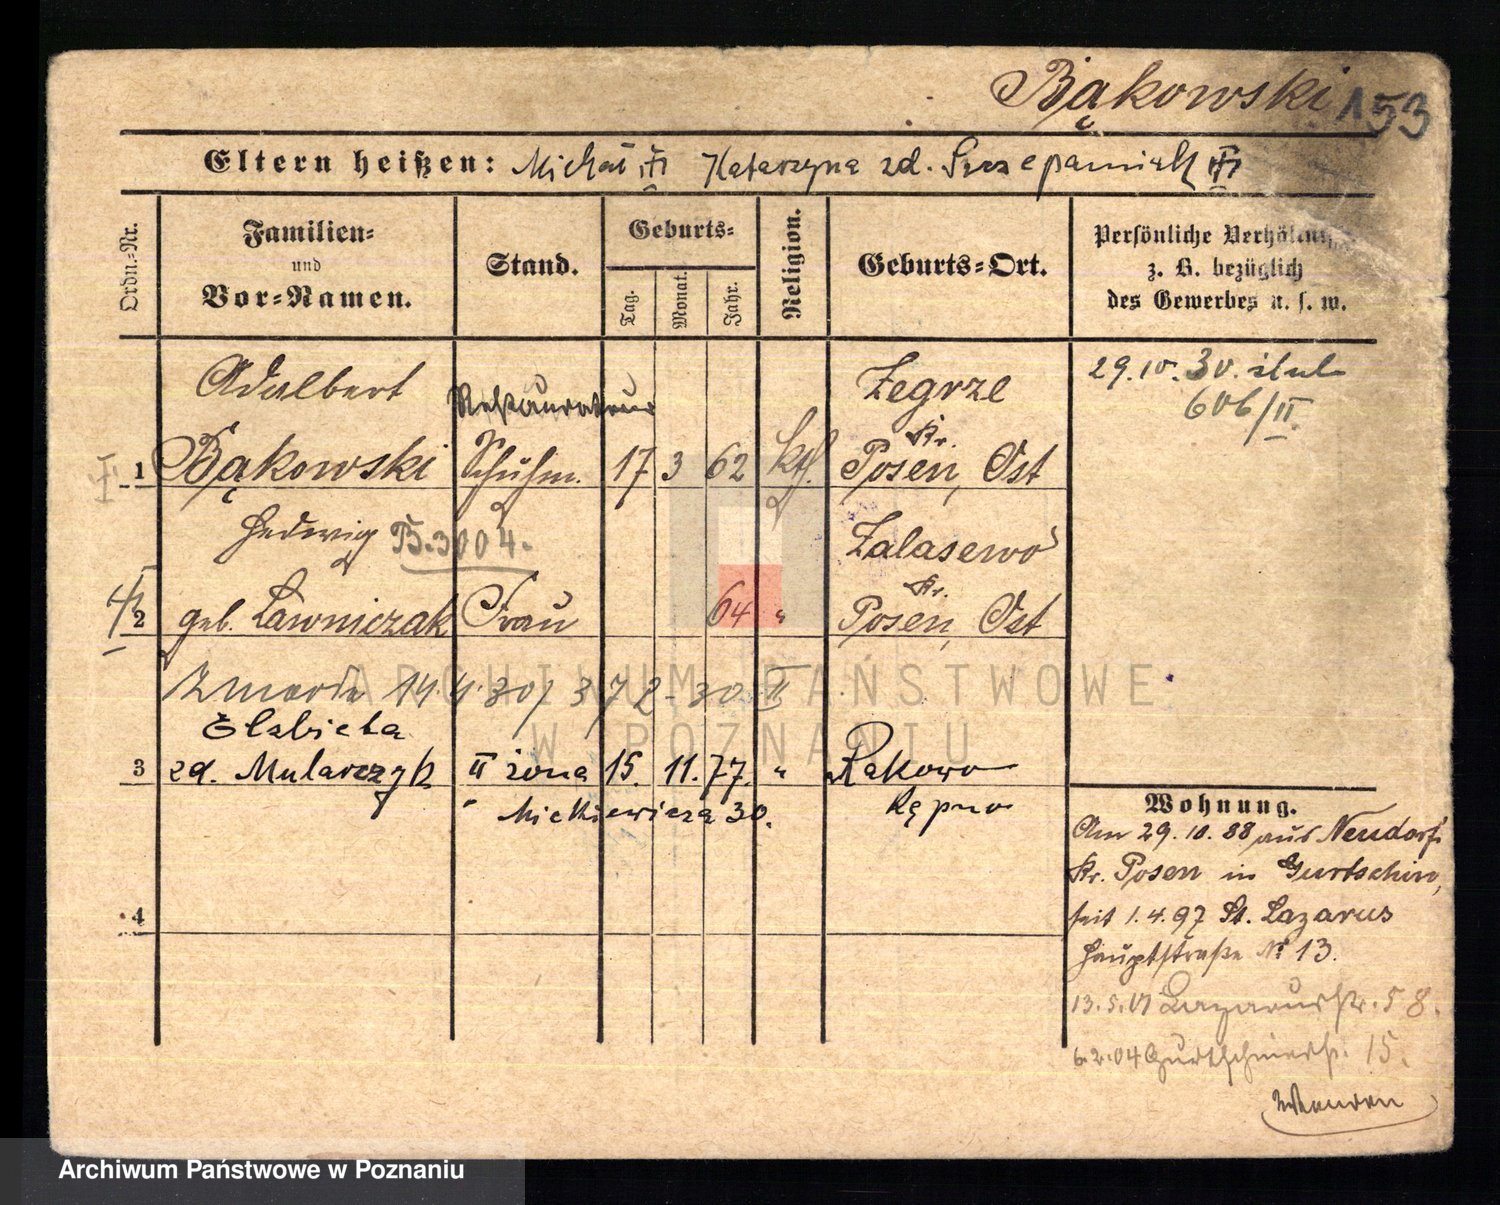 Bąkowski 153
Eltern heißen: Michał Katarzyna zd. Szczepaniak
Ordn.-Nr.
Familien-
und
Vor-Namen.
Stand.
Geburts-
Tag.
Monat.
Jahr.
Religion.
Geburts-Ort.
Persönliche Verhältnisse
z. B. bezüglich
des Gewerbes u. s. w.
Adalbert Restaurateur Zegrze
I 1 Bąkowski Schuhm. 17 3 62 kth. Kr. Posen, Ost
29.10.30. stul.
606/II.
Hedwig B.3004. Zalasewo
2 geb. Ławniczak Frau 64 " Kr. Posen, Ost
Zmarła 14.4.30/372-30 II
Elżbieta
3 zd. Mularczyk II żona 15. 11. 77. " Rakowo
" Mickiewicza 30. Kępno
4
Wohnung.
Am 29.10.88 aus Neudorf
Kr. Posen in Gurtschin,
seit 1.4.97 St. Lazarus
Hauptstraße № 13.
13.5.01 Lazarusstr. 58.
6.2.04 Gurtschinerstr. 15.
ARCHIWUM PAŃSTWOWE
W POZNANIU
Archiwum Państwowe w Poznaniu